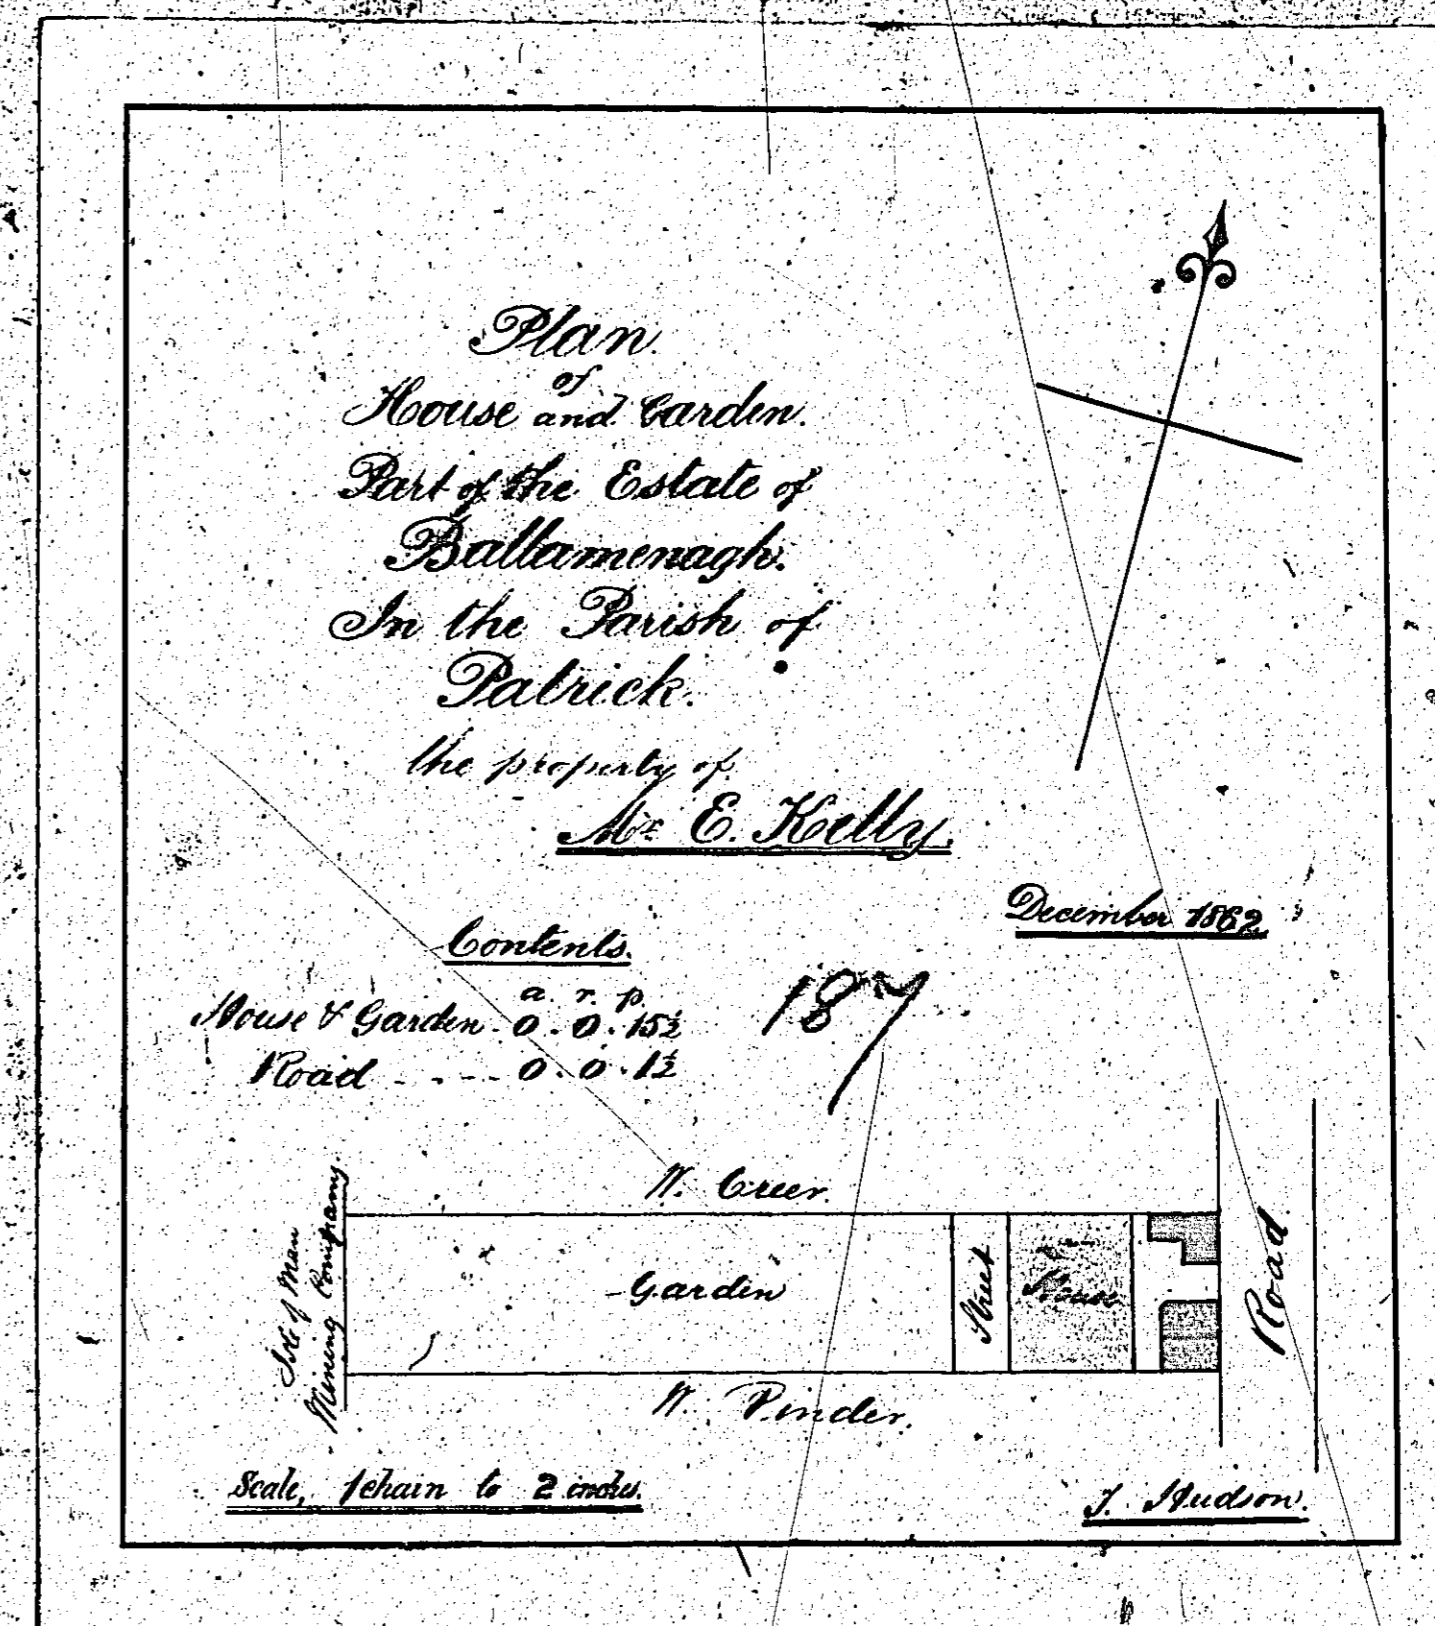 Plan
of
House and Garden.
Part of the Estate of
Ballamenagh.
In the Parish of
Patrick.
the property of
Mr E. Kelly.
December 1862
Contents.
a. r. p.
House & Garden. 0. 0. 15½
Road - - - - 0. 0. 1½
187
W. Creer.
Isle of Man
Mining Company.
Garden
Street
House
Road
W. Pinder.
Scale, 1 chain to 2 inches.
J. Hudson.